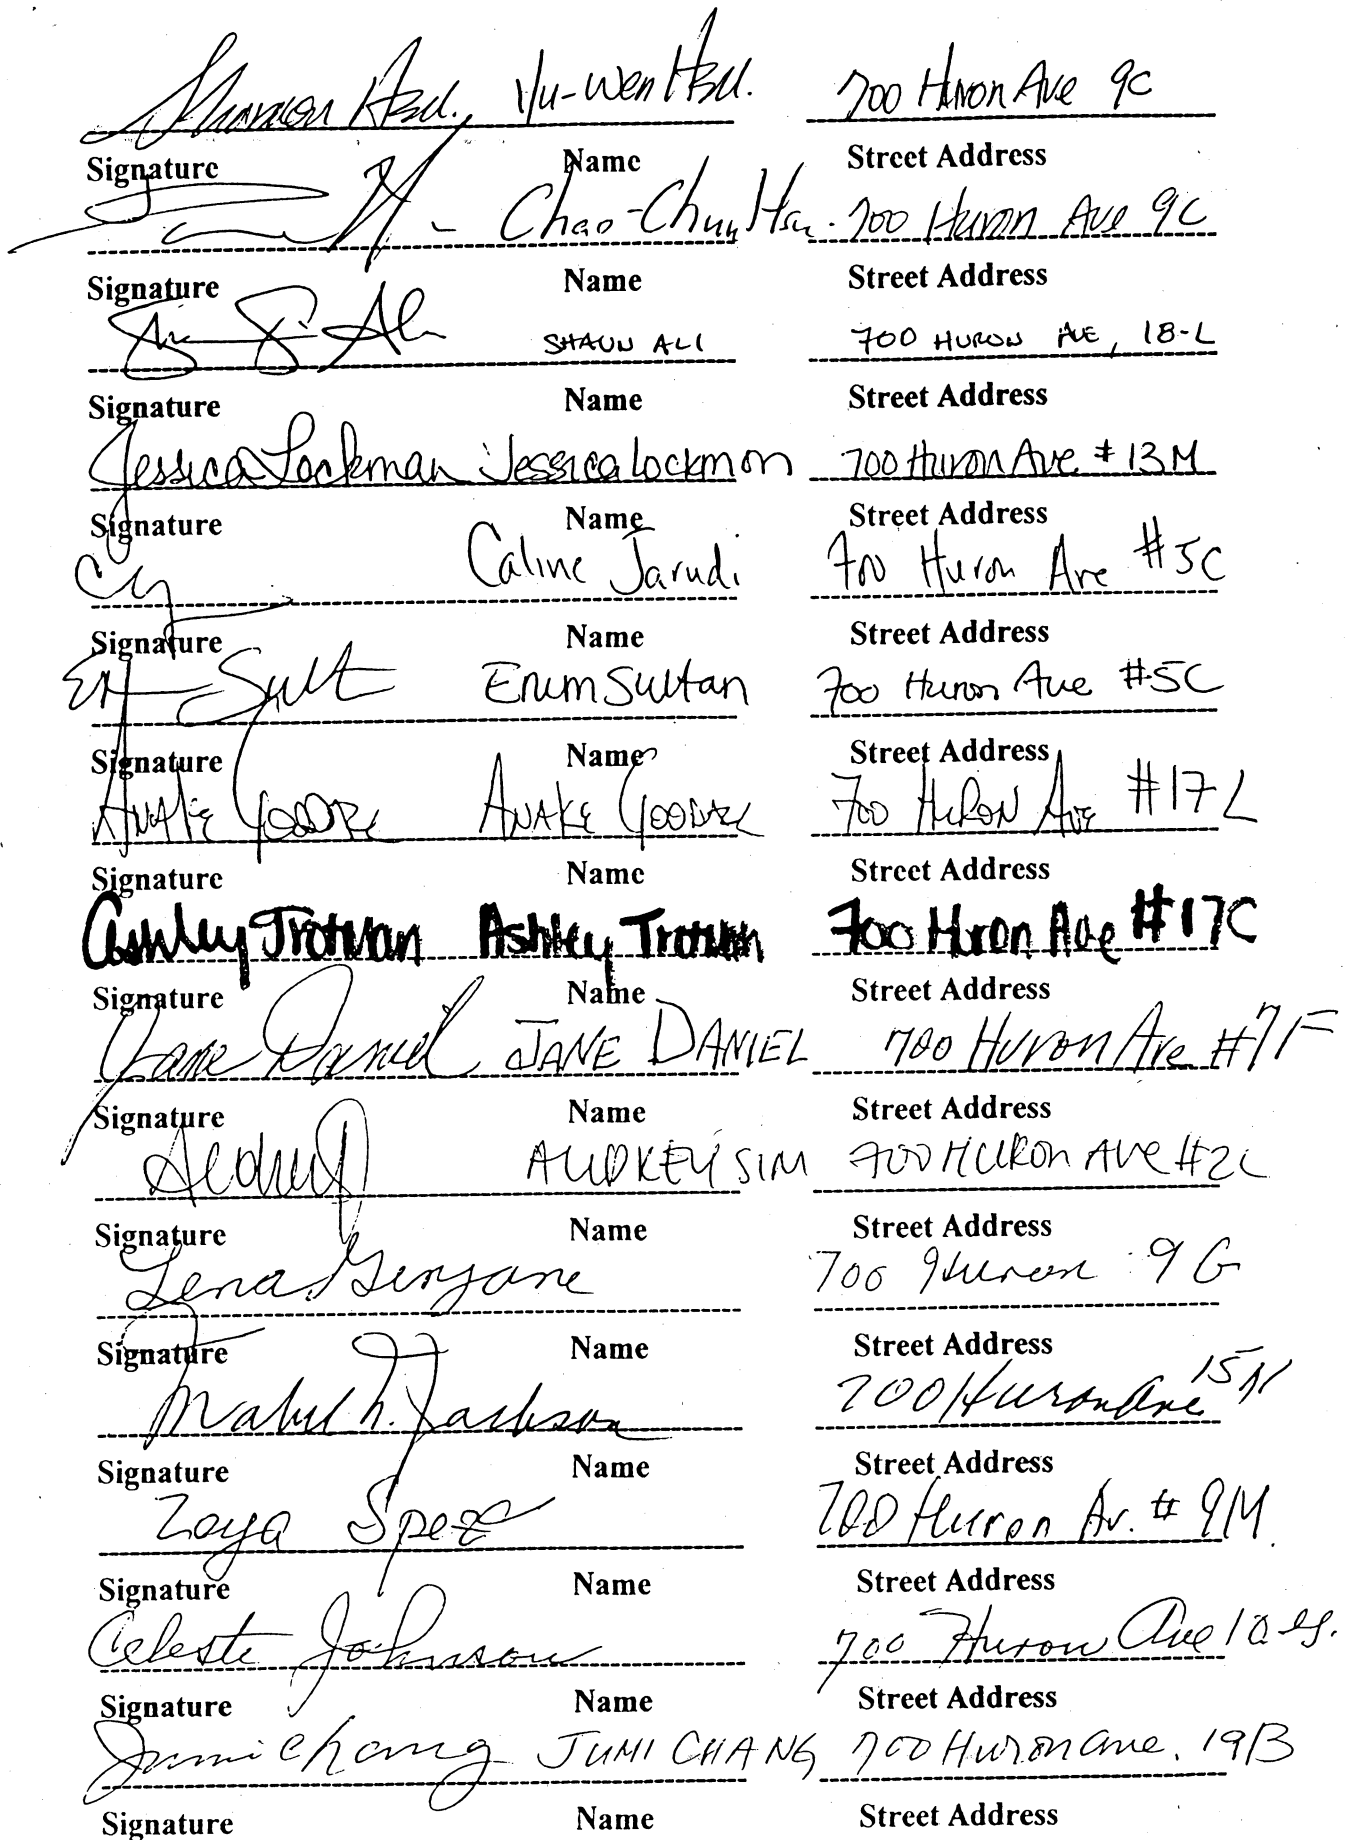 Shannon Hsu, Yu-Wen Hsu. 700 Huron Ave 9C
Signature Name Street Address
Chao-Chun Hsu. 700 Huron Ave 9C
Signature Name Street Address
SHAUN ALI 700 HURON AVE, 18-L
Signature Name Street Address
Jessica Lockman Jessica Lockman 700 Huron Ave #13M
Signature Name Street Address
Caline Jarudi 700 Huron Ave #5C
Signature Name Street Address
Erum Sultan 700 Huron Ave #5C
Signature Name Street Address
700 HURON AVE #17L
Signature Name Street Address
Ashley Trotman Ashley Trotman 700 Huron Ave #17C
Signature Name Street Address
Jane Daniel JANE DANIEL 700 Huron Ave #7F
Signature Name Street Address
Audrey AUDREY SIM 700 HURON AVE #2L
Signature Name Street Address
Lena 700 Huron 9G
Signature Name Street Address
Mabel h. Jackson 700 Huron Ave 15N
Signature Name Street Address
Zoya 700 Huron Av. # 9M
Signature Name Street Address
Celeste Johnson 700 Huron Ave
Signature Name Street Address
Jumi Chang JUMI CHANG 700 Huron ave. 19B
Signature Name Street Address